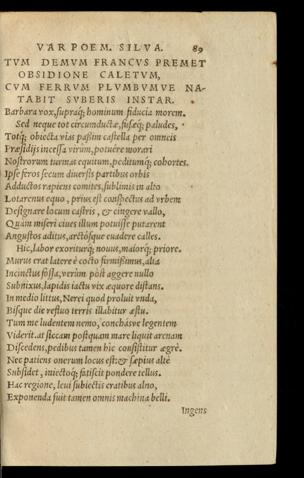 VAR POEM. SILVA. 89
TVM DEMVM FRANCVS PREMET
OBSIDIONE CALETVM,
CVM FERRVM PLVMBVMVE NA-
TABIT SVBERIS INSTAR.
Barbara vox, supraq; hominum fiducia morem.
Sed neque tot circumductæ, fusæq; paludes,
Totq; obiecta vias paßim castella per omneis
Præsidijs incessa virûm, potuêre morari
Nostrorum turmas equitum, peditumq; cohortes.
Ipse feros secum diuersis partibus orbis
Adductos rapiens comites, sublimis in alto
Lotarenus equo, prius est conspectus ad vrbem
Designare locum castris, & cingere vallo,
Quàm miseri ciues illum potuisse putarent
Angustos aditus, arctósque euadere calles.
Hic, labor exoritur; nouus, maiorq; priore.
Murus erat latere è cocto firmißimus, alta
Incinctus fossa, verùm pòst aggere nullo
Subnixus, lapidis iactu vix æquore distans.
In medio littus, Nerei quod proluit vnda,
Bisque die refluo terris illabitur æstu.
Tum me ludentem nemo, conchásve legentem
Viderit. at siccam postquam mare liquit arenam
Discedens, pedibus tamen hîc consistitur ægrè.
Nec patiens onerum locus est: & sæpius altè
Subsidet, iniectoq; fatiscit pondere tellus.
Hac regione, leui subiectis cratibus alno,
Exponenda fuit tamen omnis machina belli.
Ingens